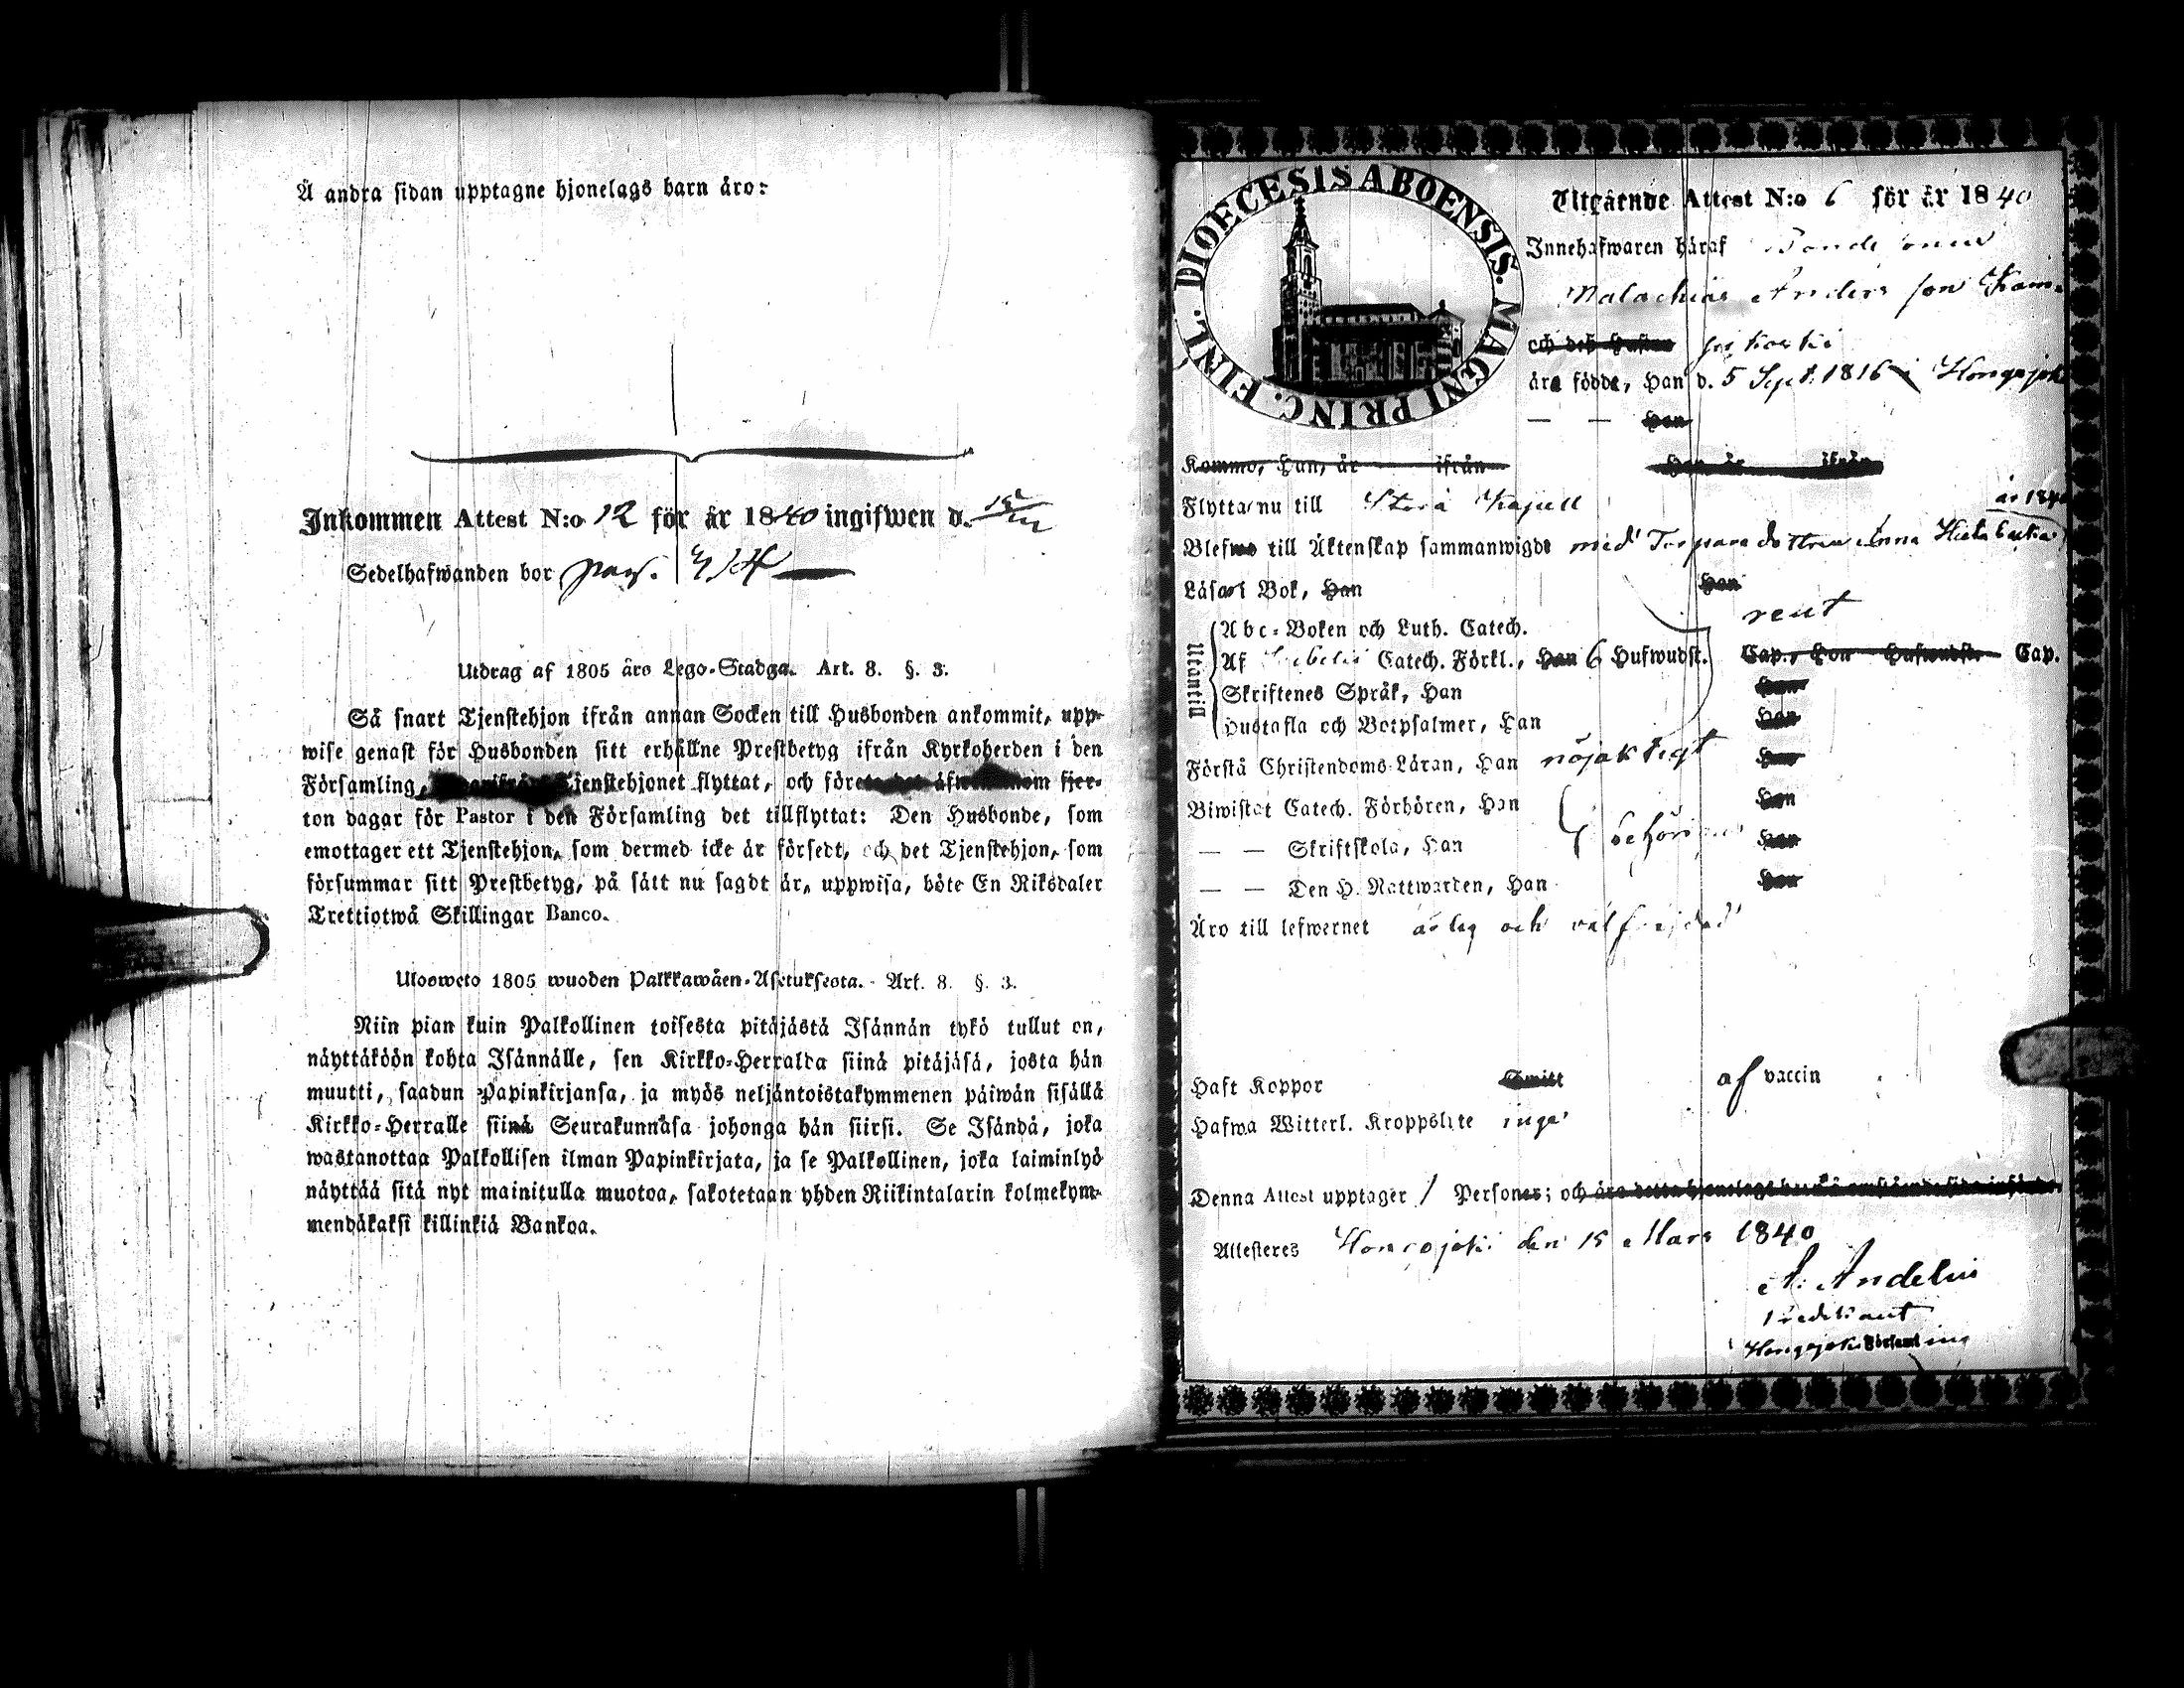 Å andra sidan upptagne hjonelags barn äro:
Inkommen Attest N:o 12 för år 1840 ingifwen d.
Sedelhafwanden bor pag.
Utdrag af 1805 års Lego-Stadga. Art. 8. §. 3.
Så snart Tjenstehjon ifrån annan Socken till Husbonden ankommit, upp-
wise genast för Husbonden sitt erhållne Prestbetyg ifrån Kyrkoherden i den
Församling, Tjenstehjonet flyttat, och fjor-
ton dagar för Pastor i den Församling det tillflyttat: Den Husbonde, som
emottager ett Tjenstehjon, som dermed icke är försedt, och det Tjenstehjon, som
försummar sitt Prestbetyg, på sätt nu sagdt är, uppwisa, böte En Riksdaler
Trettiotwå Skillingar Banco.
Ulosweto 1805 wuoden Palkkawäen-Asetuksesta. Art. 8. §. 3.
Niin pian kuin Palkollinen toisesta pitäjästä Isännän tykö tullut on,
näyttäköön kohta Isännälle, sen Kirkko-Herralda siinä pitäjäsä, josta hän
muutti, saadun Papinkirjansa, ja myös neljäntoistakymmenen päiwän sisällä
Kirkko-Herralle siinä Seurakunnasa johonga hän siirsi. Se Isändä, joka
wastanottaa Palkollisen ilman Papinkirjata, ja se Palkollinen, joka laiminlyö
näyttää sitä nyt mainitulla muotoa, sakotetaan yhden Riikintalarin kolmekym-
mendäkaksi killinkiä Bankoa.
DIOECESIS ABOENSIS. MAGNI PRINC. FINL.
Utgående Attest N:o 6 för år 1840
Innehafwaren häraf Bonde sonen
Malachias Anders son Kam-
och deß Hustru
äro födde, Han d. 5 Sept. 1816 i Hongojoki
— — Hon
Komma, Han, är ifrån Hon är ifrån
Flytta nu till Storå Kapell
år 1840
Blefwo till Äktenskap sammanwigde med Torpare dottren Anna
Läsa i Bok, Han Hon
rent
Utantill
Abc-Boken och Luth. Catech.
Af Catech. Förkl., Han 6 Hufwudst. Cap., Hon Hufwudst. Cap.
Skriftenes Språk, Han Hon
Hustafla och Botpsalmer, Han Hon
Förstå Christendoms Läran, Han nöjaktigt Hon
Biwistat Catech. Förhören, Han Hon
— — Skriftskola, Han Hon
— — Den H. Nattwarden, Han Hon
Äro till lefwernet ärlig och välfrejdad
Haft Koppor Smitt af vaccin
Hafwa Witterl. Kroppslyte inga
Denna Attest upptager 1 Persones; och
Attesteres Hongojoki den 15 Mars 1840
A: Andelin
Predikant
Hongojoki Församling